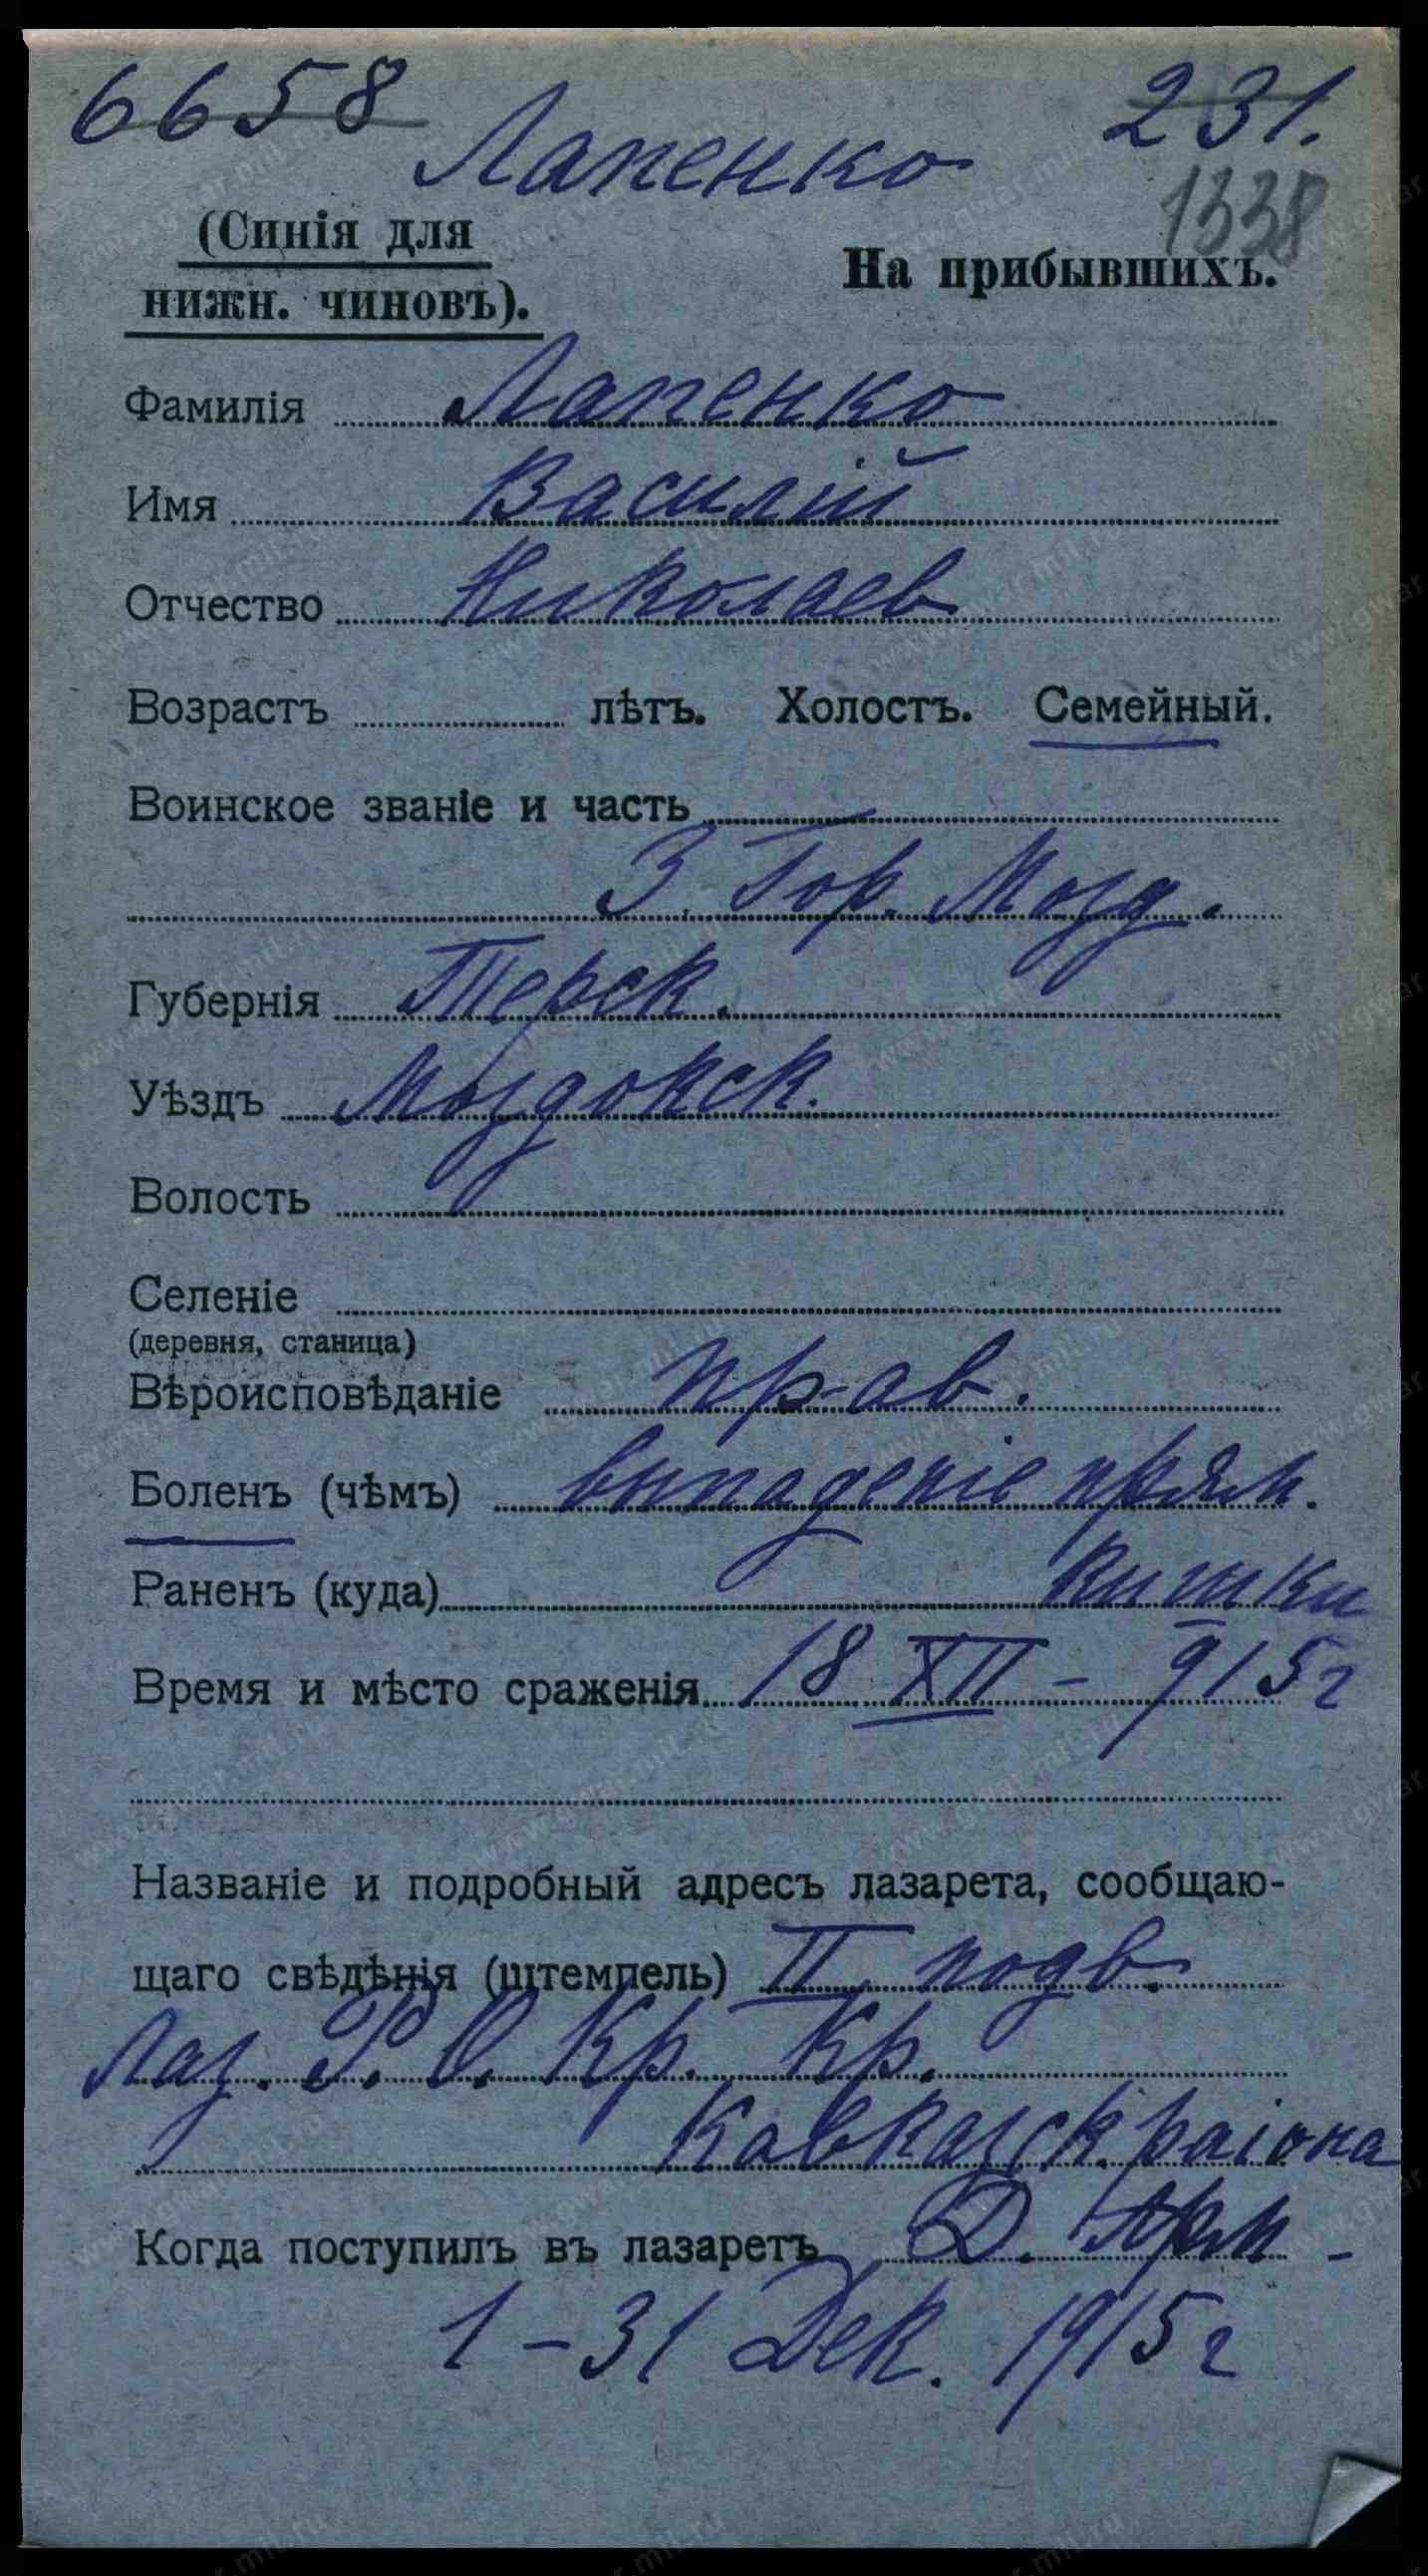 6658
231.
Лапенко
1338
(Синія для
нижн. чиновъ).
На прибывшихъ.
Фамилія Лапенко
Имя Василій
Отчество Николаев
Возрастъ лѣтъ. Холостъ. Семейный.
Воинское званіе и часть
3. Гор. Мозд.
Губернія Терск.
Уѣздъ Моздокск.
Волость
Селеніе
(деревня, станица)
Вѣроисповѣданіе прав.
Боленъ (чѣмъ) выпаденіе прям.
Раненъ (куда) кишки
Время и мѣсто сраженія 18 XII - 915 г
Названіе и подробный адресъ лазарета, сообщаю-
щаго свѣдѣнія (штемпель) II подв.
Лаз. Р. О. Кр. Кр.
Кавказск. раіона
Когда поступилъ въ лазаретъ Д. Арм -
1 - 31 Дек. 1915 г